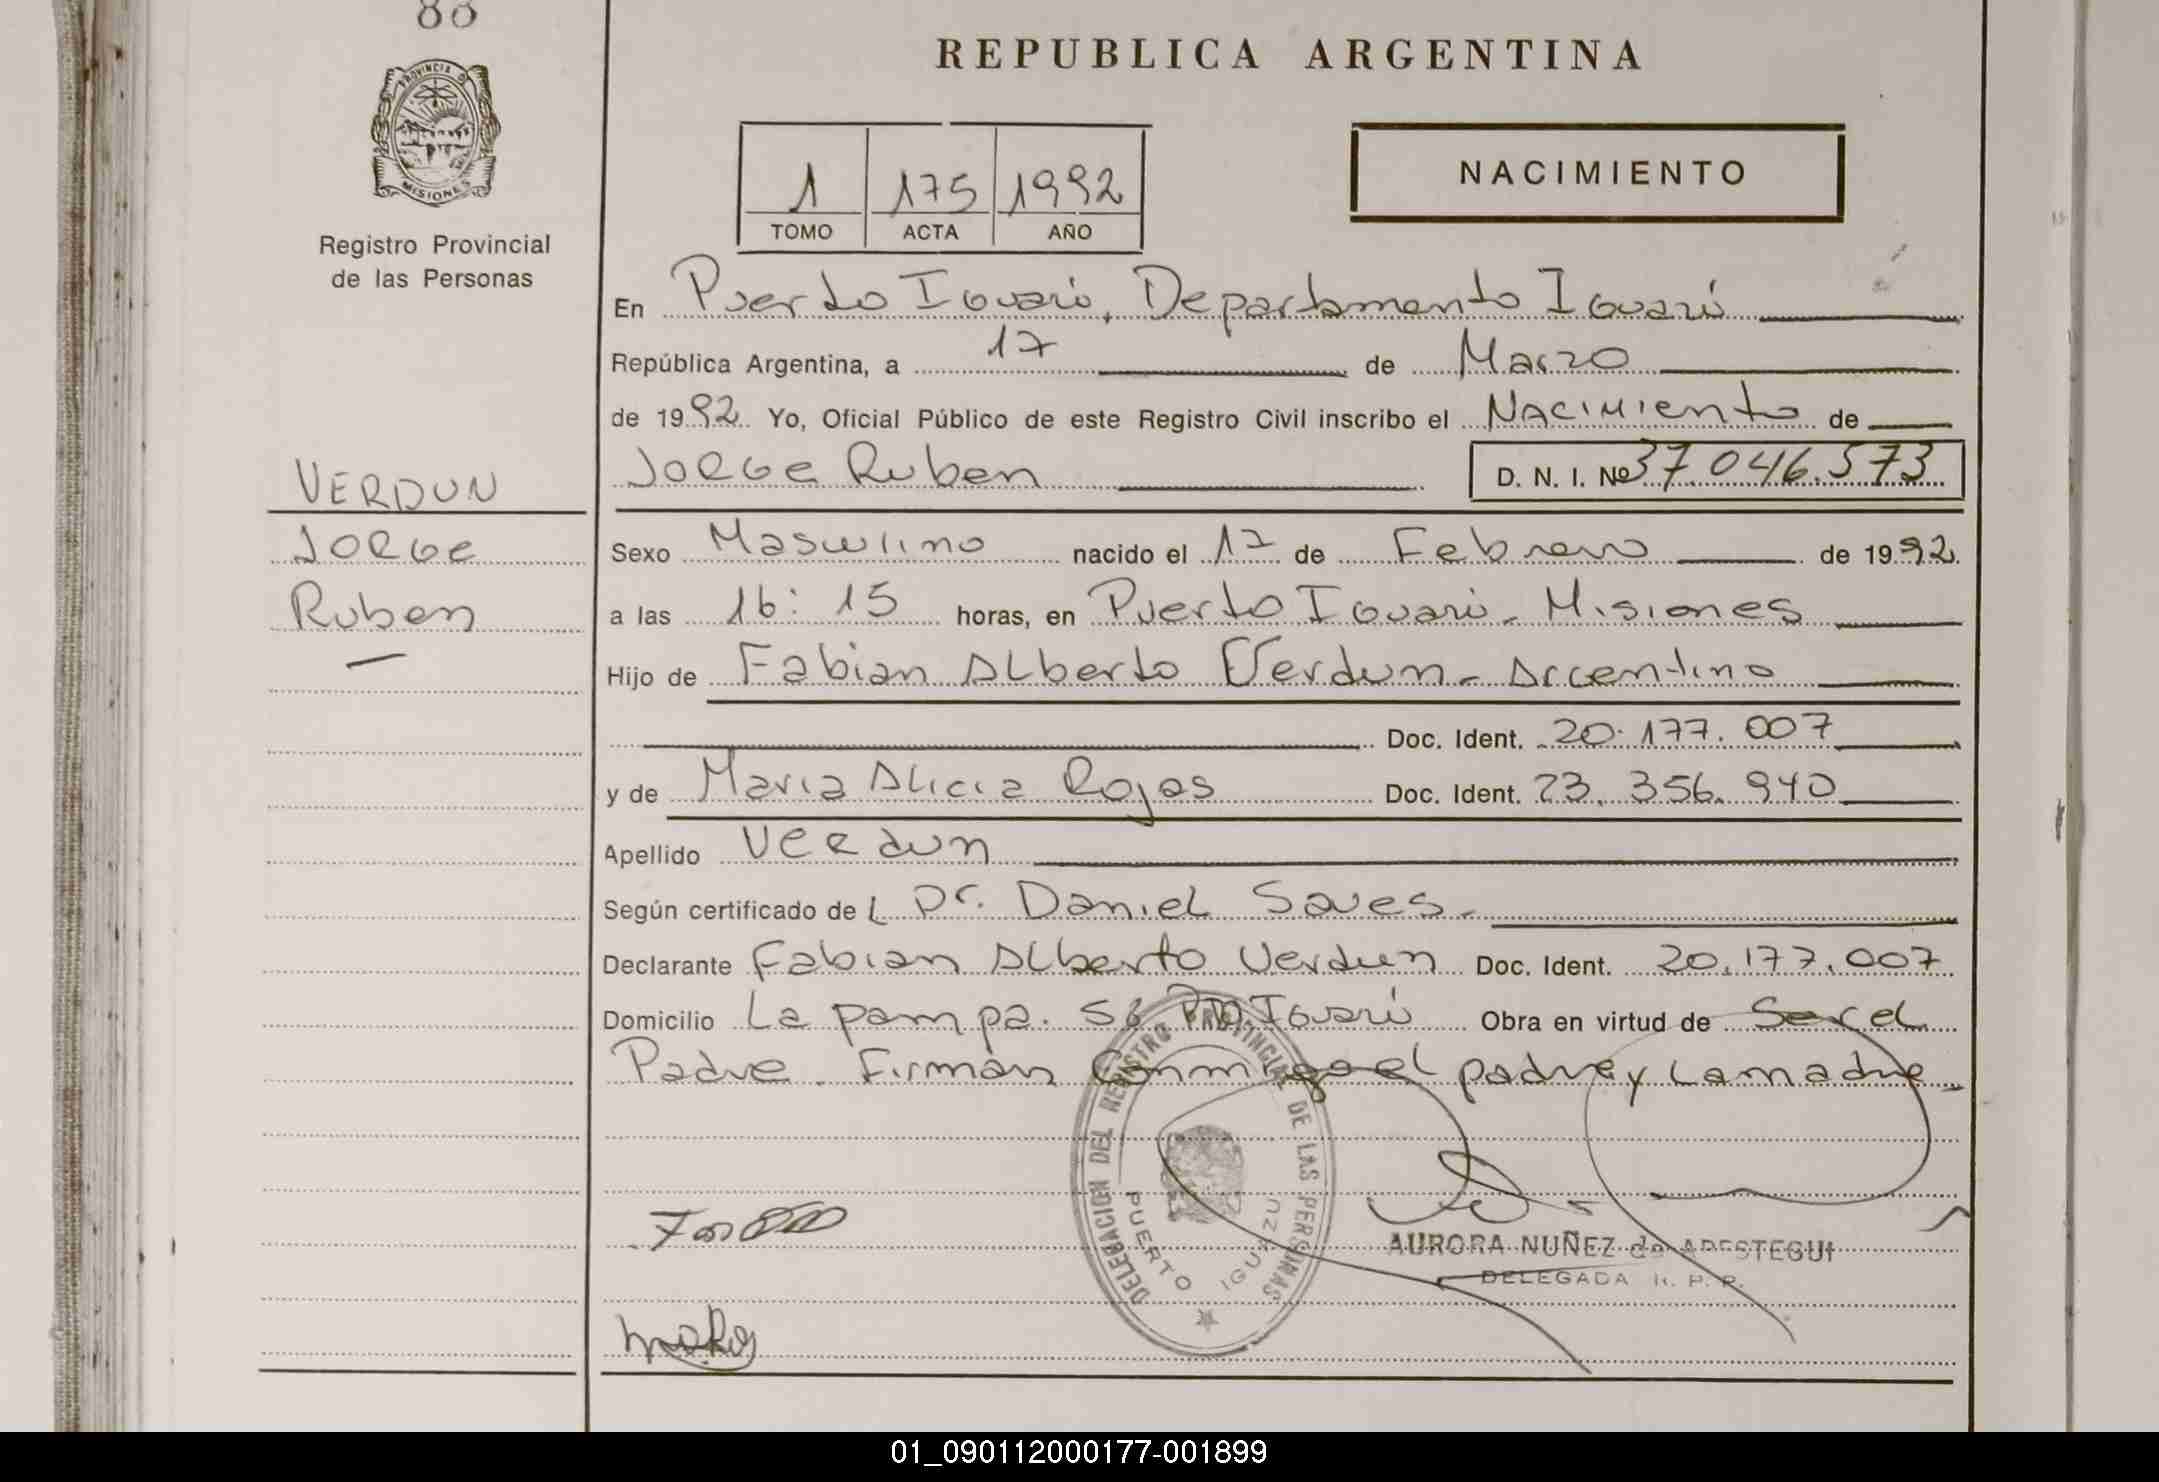 88
REPUBLICA ARGENTINA
PROVINCIA D
MISIONES
Registro Provincial
de las Personas
1 175 1992
TOMO ACTA AÑO
NACIMIENTO
En Puerto Iguazú, Departamento Iguazú
República Argentina, a 17 de Marzo
de 1992 Yo, Oficial Público de este Registro Civil inscribo el Nacimiento de
VERDUN
Jorge
Ruben
Jorge Ruben D. N. I. Nº 37.046.573
Sexo Masculino nacido el 17 de Febrero de 1992.
a las 16:15 horas, en Puerto Iguazú - Misiones
Hijo de Fabian Alberto Verdun - Argentino
Doc. Ident. 20.177.007
y de Maria Alicia Rojas Doc. Ident. 23.356.940
Apellido Verdun
Según certificado de L Dr. Daniel
Declarante Fabian Alberto Verdun Doc. Ident. 20.177.007
Domicilio La pampa. 56 Iguazú Obra en virtud de Ser el
Padre. Firmán Conmigo el padre y La madre -
DELEGACION DEL REGISTRO PROVINCIAL DE LAS PERSONAS
PUERTO IGUAZU
AURORA NUÑEZ de ARESTEGUI
DELEGADA R. P. P.
01_090112000177-001899